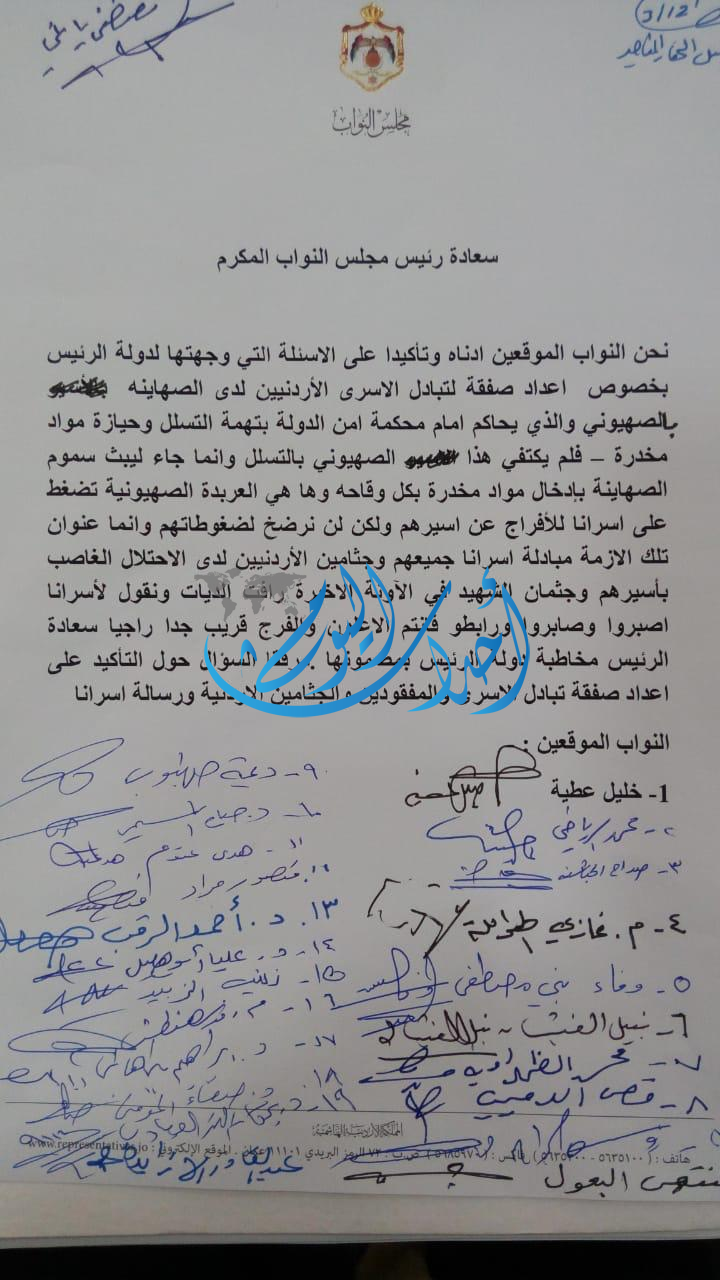 مصطفى ياغي
3/12
مجلس النواب
سعادة رئيس مجلس النواب المكرم
نحن النواب الموقعين ادناه وتأكيدا على الاسئلة التي وجهتها لدولة الرئيس
بخصوص اعداد صفقة لتبادل الاسرى الأردنيين لدى الصهاينه
بالصهيوني والذي يحاكم امام محكمة امن الدولة بتهمة التسلل وحيازة مواد
مخدرة – فلم يكتفي هذا الصهيوني بالتسلل وانما جاء ليبث سموم
الصهاينة بإدخال مواد مخدرة بكل وقاحه وها هي العربدة الصهيونية تضغط
على اسرانا للأفراج عن اسيرهم ولكن لن نرضخ لضغوطاتهم وانما عنوان
تلك الازمة مبادلة اسرانا جميعهم وجثامين الأردنيين لدى الاحتلال الغاصب
بأسيرهم وجثمان الشهيد في الآونة الاخيرة رأفت الديات ونقول لأسرانا
اصبروا وصابروا ورابطو فأنتم الاعلون والفرج قريب جدا راجيا سعادة
الرئيس مخاطبة دولة الرئيس بمضمونها مرفقا السؤال حول التأكيد على
اعداد صفقة تبادل الاسرى والمفقودين والجثامين الاردنية ورسالة اسرانا
أحداث اليوم
النواب الموقعين :
1- خليل عطية
٢- محمد الرياضي
٣- صداح الحباشنه
٤- م. غازي الهواملة
٥- وفاء بني مصطفى
٦- نبيل الغيشان
٧- محمد الظهراوي
٨- قصي الدميسي
٩- ديمة طهبوب
١٠- د.
١١- هدى عتوم
١٢- منصور مراد
١٣- د. أحمد الرقب
١٤- د. علياء أبو هليل
١٥- زينب الزبيد
١٦- م.
١٧- د. ابراهيم
١٨- صفاء المومني
١٩- د.
المملكة الأردنية الهاشمية
هاتف : ( ٥٦٣٥١٠٠ - ) فاكس : ( ٥٦٨٥٩٧٠ ) ص.ب : ٧٢ الرمز البريدي ١١١٠١ عمان . الموقع الإلكتروني : www.representatives.jo